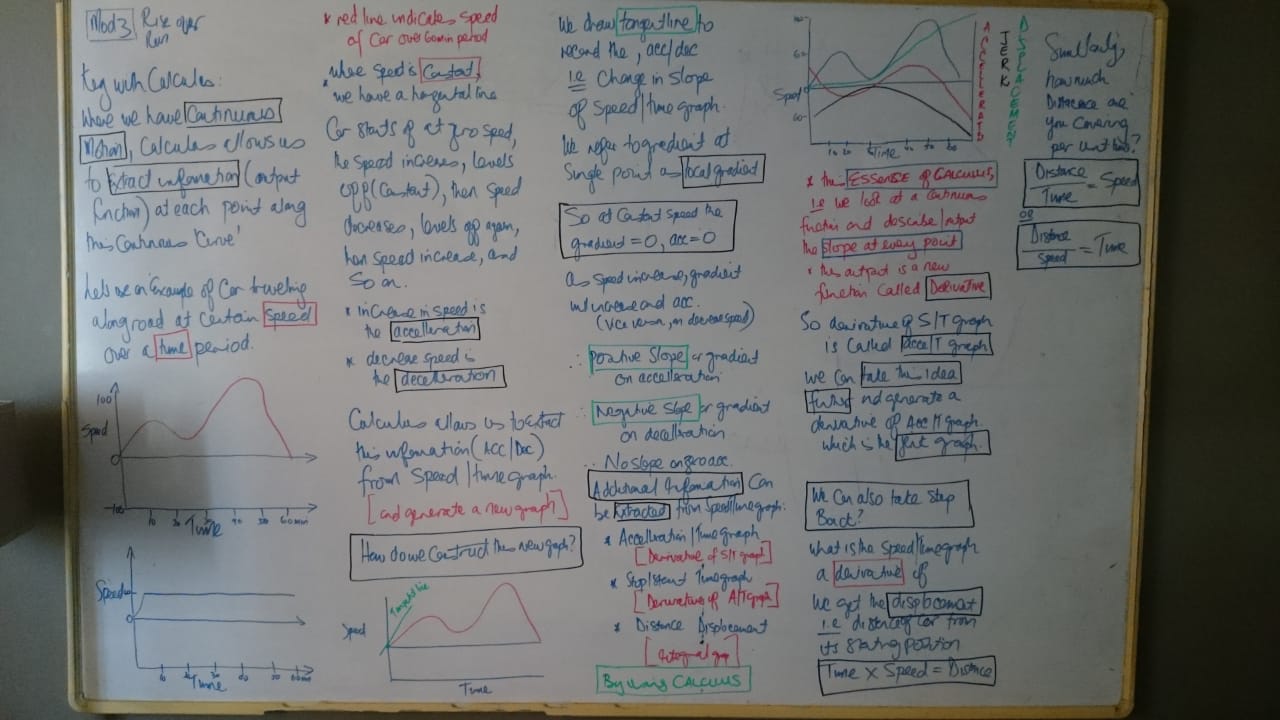 Mod3
Rise over
Run
Key with Calculus:
Where we have Continuous
Motion, Calculus allows us
to Extract information (output
function) at each point along
this Continuous 'Curve'
Lets use an Example of Car traveling
along road at certain Speed
over a time period.
100
Speed
0
-100
10
40
60min
Time
Speed
0
Time
* red line indicates speed
of Car over 60min period
* where speed is Constant,
we have a horizontal line
Car starts of at zero speed,
the speed increases, levels
off (Constant), then speed
decreases, levels off again,
then speed increase, and
So on.
* increase in speed is
the accelleration
* decrease speed is
the decelleration
Calculus allows us to Extract
this information (ACC/Dec)
from Speed/time graph.
[and generate a new graph]
How do we Construct this new graph?
Tangent line
Speed
Time
We draw tangent line to
record the, acc/dec
i.e Change in Slope
of Speed/time graph.
We refer to gradient at
Single point as local gradient
So at Constant speed the
gradient = 0, acc = 0
as speed increase, gradient
will increase and acc.
(Vice versa, on decrease speed)
∴ Positive Slope or gradient
on accelleration
∴ Negative Slope or gradient
on decelleration
∴ No slope on zero acc.
Additional Information Can
be Extracted from Speed/time graph.
* Accelleration/Time graph
[Derivative of S/T graph]
* Stop/Start Time graph
[Derivative of A/T graph]
* Distance Displacement
[Integral graph]
By using CALCULUS
Speed
Time
ACCELERATION
JERK
DISPLACEMENT
* this ESSENSE of CALCULUS
i.e we look at a Continuous
function and describe/output
the slope at every point
* this output is a new
function called Derivative
So derivative of S/T graph
is Called Acce/T graph
we can take this idea
further and generate a
derivative of Acc/T graph.
which is the Jerk graph.
We Can also take Step
Back?
what is the speed/time graph
a derivative of
We get the displacement
i.e distance of car from
its starting position
Time x Speed = Distance
Similarly,
how much
Distance are
you covering
per unit time?
Distance
Time = Speed
or
Distance
Speed = Time